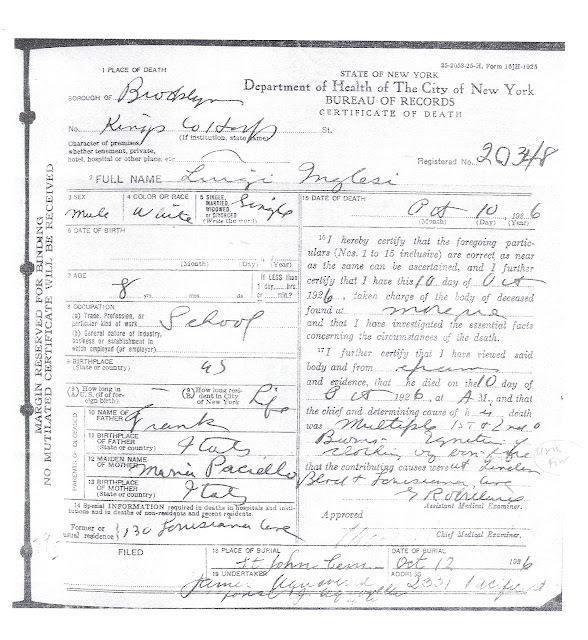 25-2053-25-H, Form 15JH-1925
1 PLACE OF DEATH
STATE OF NEW YORK
Department of Health of The City of New York
BUREAU OF RECORDS
CERTIFICATE OF DEATH
BOROUGH OF Brooklyn
No. Kings Co Hosp St.
(If institution, state name)
Character of premises,
whether tenement, private,
hotel, hospital or other place, etc.
Registered No. 20348
2 FULL NAME Luigi Inglesi
3 SEX
Male
4 COLOR OR RACE
White
5 SINGLE,
MARRIED,
WIDOWED,
or DIVORCED
(Write the word)
Single
6 DATE OF BIRTH
(Month) (Day) (Year)
7 AGE
8
yrs. mos. ds.
If LESS than
1 day, hrs.
or min.?
8 OCCUPATION
(a) Trade, Profession, or
particular kind of work
School
(b) General nature of industry,
business or establishment in
which employed (or employer)
9 BIRTHPLACE
(State or country)
US
(9A) How long in
U.S. (if of foreign birth)
(9B) How long resident in City
of New York
Life
PARENTS OF DECEASED
10 NAME OF
FATHER
Frank
11 BIRTHPLACE
OF FATHER
(State or country)
Italy
12 MAIDEN NAME
OF MOTHER
Maria Paciello
13 BIRTHPLACE
OF MOTHER
(State or country)
Italy
14 Special INFORMATION required in deaths in hospitals and institutions
and in deaths of non-residents and recent residents.
Former or
usual residence
130 Louisiana Ave
15 DATE OF DEATH
Oct 10, 1926
(Month) (Day) (Year)
16 I hereby certify that the foregoing particulars
(Nos. 1 to 15 inclusive) are correct as near
as the same can be ascertained, and I further
certify that I have this 10 day of Oct
1926, taken charge of the body of deceased
found at morgue
and that I have investigated the essential facts
concerning the circumstances of the death.
17 I further certify that I have viewed said
body and from
and evidence, that he died on the 10 day of
Oct 1926, at A M., and that
the chief and determining cause of his death
was Multiple 1st & 2nd
Burns Ignition of
clothing by
that the contributing causes were at Linden
Blvd & Louisiana Ave
Assistant Medical Examiner.
Approved
Chief Medical Examiner.
FILED
18 PLACE OF BURIAL
St John Cem
DATE OF BURIAL
Oct 12 1926
19 UNDERTAKER
James
ADDRESS
2331 Pacific St
MARGIN RESERVED FOR BINDING
NO MUTILATED CERTIFICATE WILL BE RECEIVED